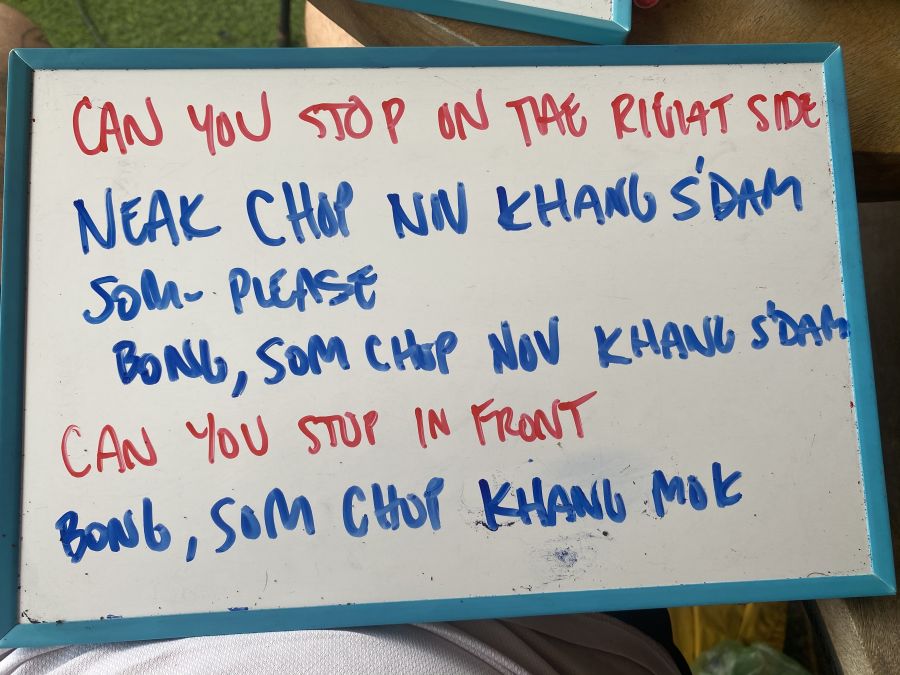 CAN YOU STOP ON THE RIGHT SIDE
NEAK CHOP NIV KHANG S'DAM
SOM- PLEASE
BONG, SOM CHOP NOV KHANG S'DAM
CAN YOU STOP IN FRONT
BONG, SOM CHOP KHANG MOK